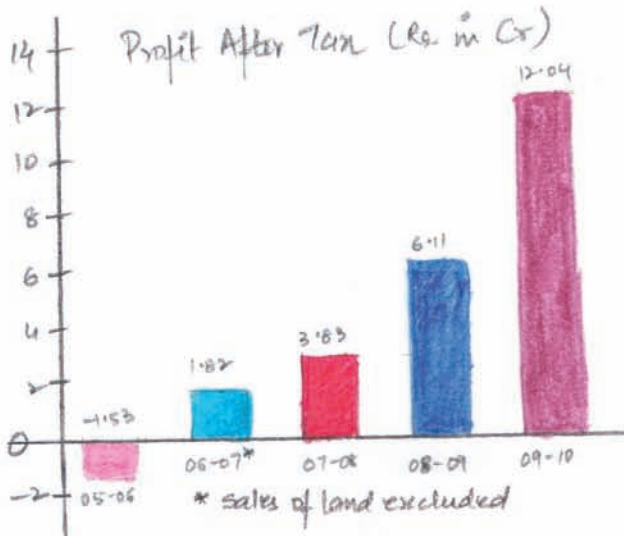 Profit After Tax (Rs in Cr)
14
12
10
8
6
4
2
0
-2
-1.53
1.82
3.83
6.11
12.04
05-06
06-07*
07-08
08-09
09-10
* sales of land excluded